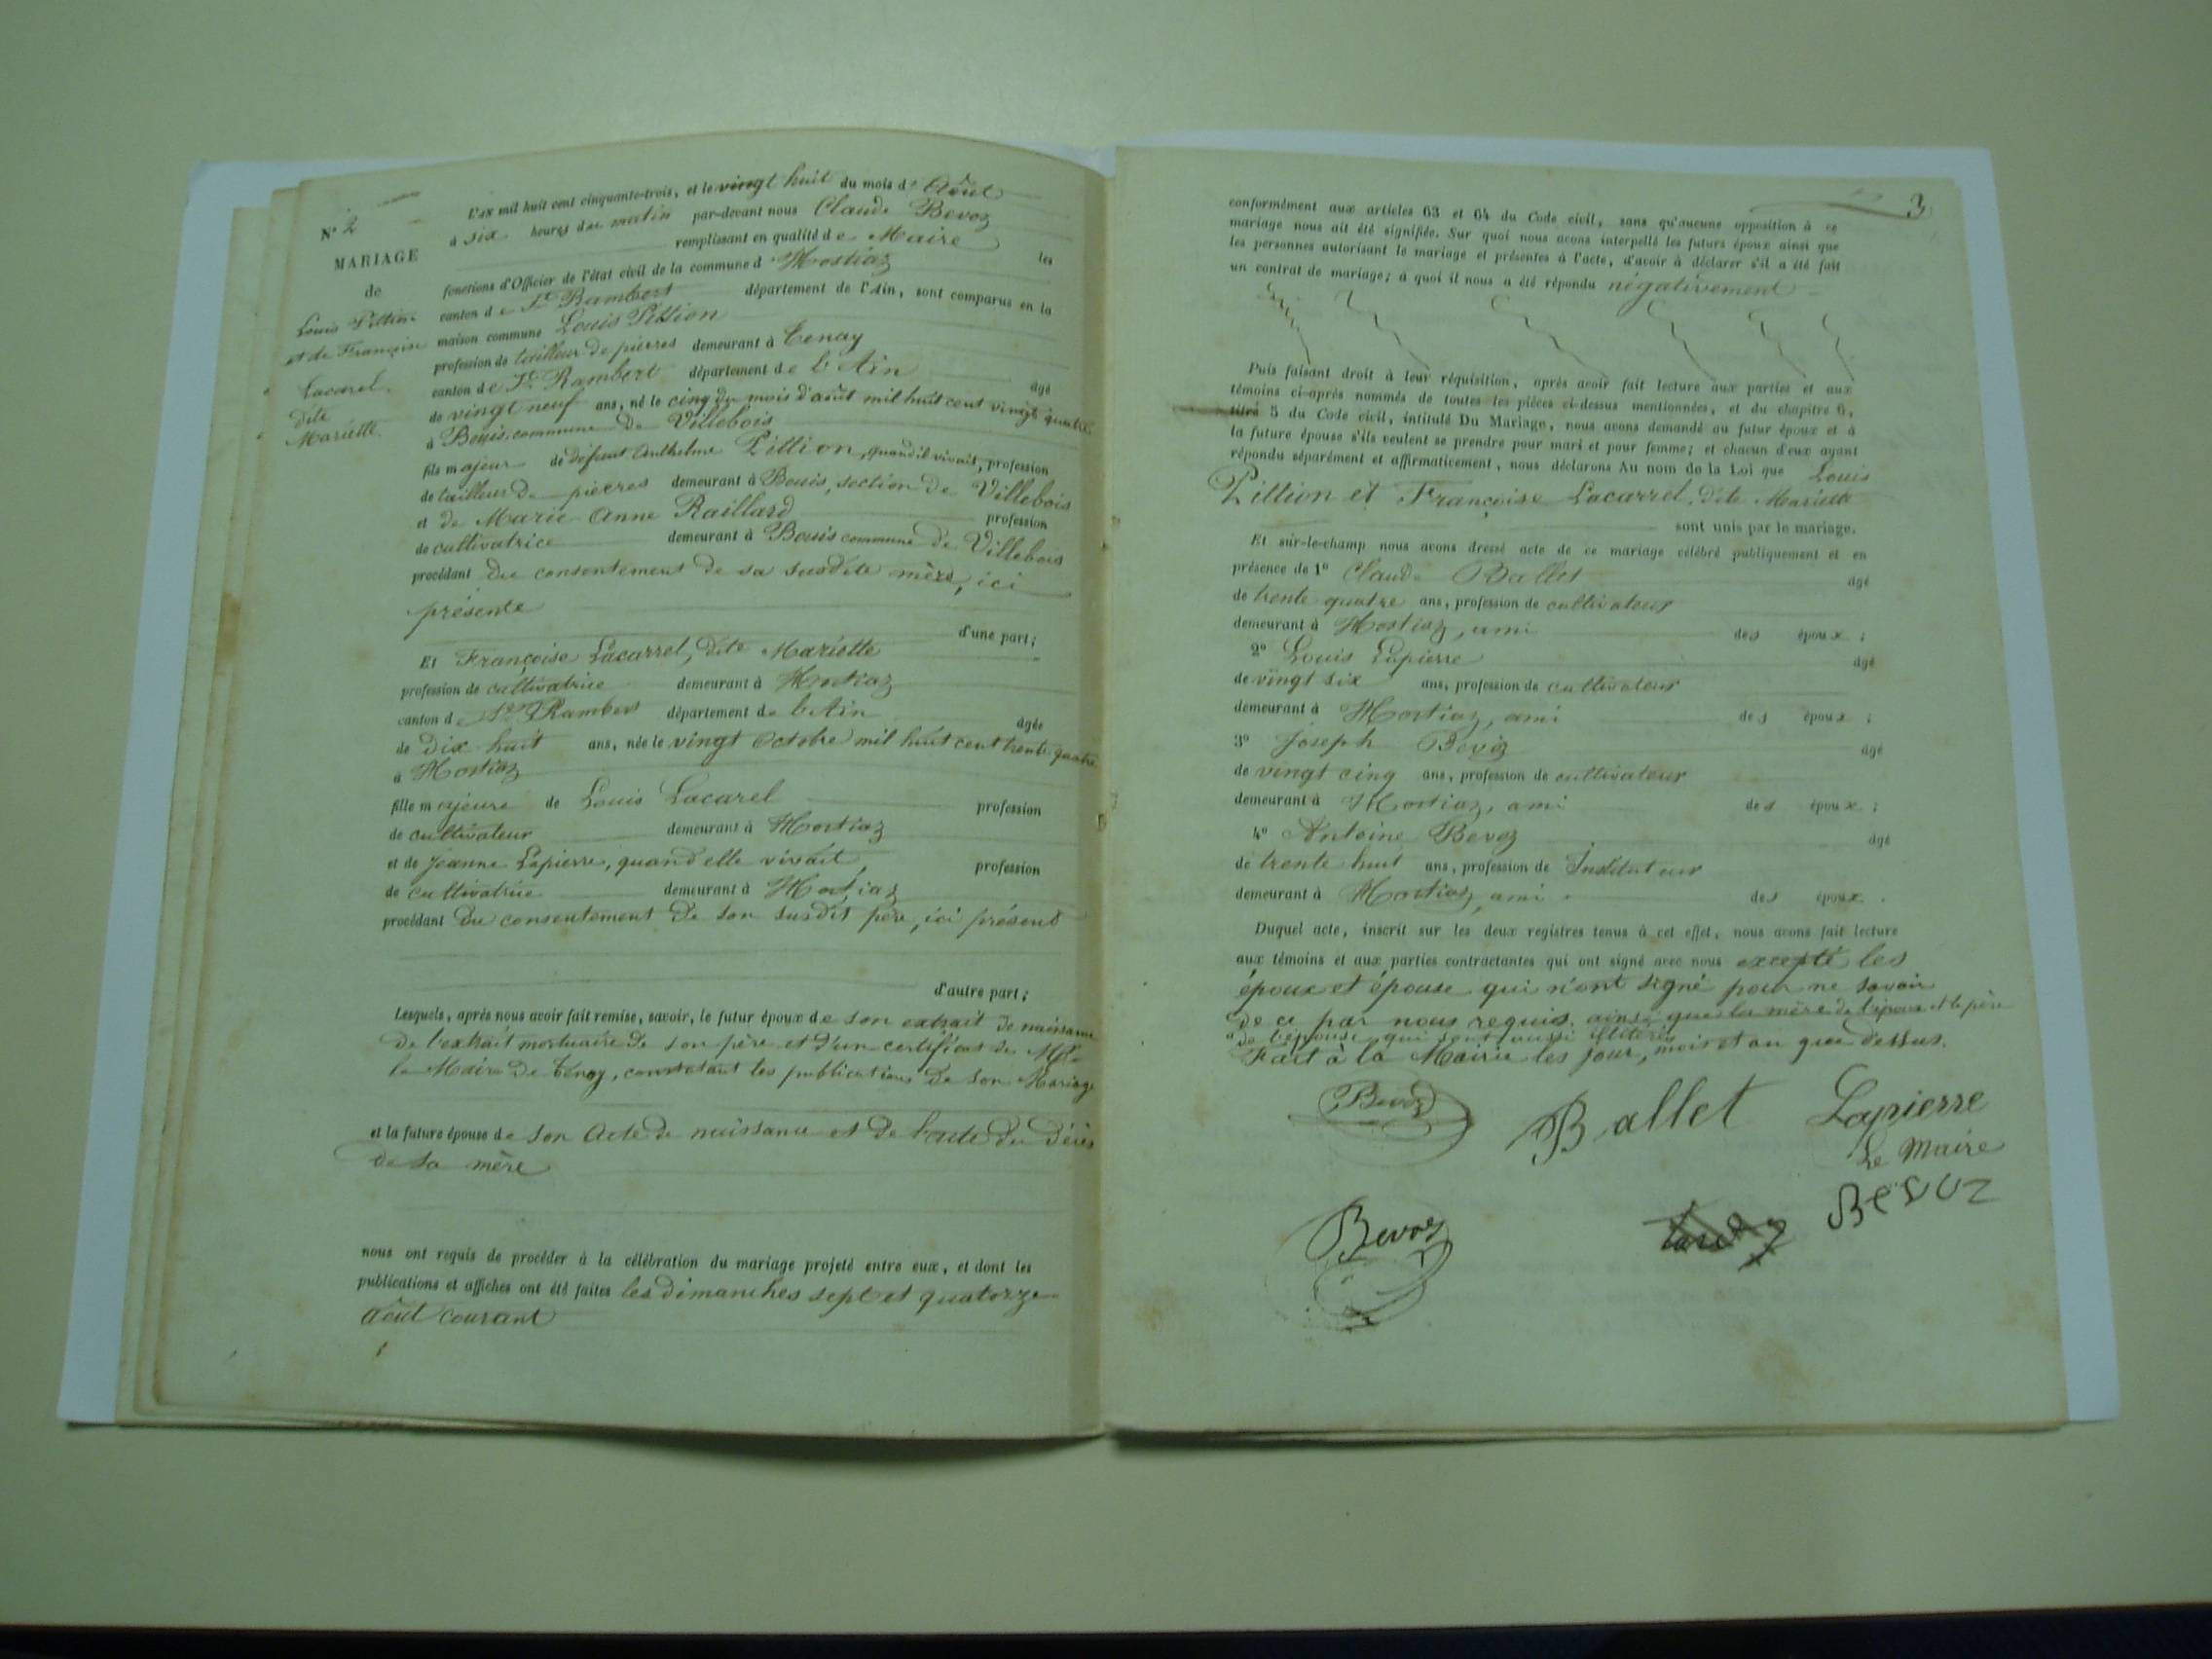 N° 2
MARIAGE
de
Louis Pittion
et de Françoise
Lacarel
dite
Mariette
L'AN mil huit cent cinquante-trois, et le vingt huit du mois d'Août
à six heures du matin par-devant nous Claude Bevoz
remplissant en qualité de Maire les
fonctions d'Officier de l'état civil de la commune d'Hostiaz
canton de St Rambert département de l'Ain, sont comparus en la
maison commune Louis Pittion
profession de tailleur de pierres demeurant à Tenay
canton de St Rambert département de l'Ain âgé
de vingt neuf ans, né le cinq du mois d'août mil huit cent vingt quatre
à Bouis commune de Villebois
fils majeur de défunt Anthelme Pittion, quand il vivait, profession
de tailleur de pierres demeurant à Bouis, section de Villebois
et de Marie Anne Raillard profession
de cultivatrice demeurant à Bouis commune de Villebois
procédant du consentement de sa susdite mère, ici
présente
d'une part;
Et Françoise Lacarrel, dite Mariette
profession de cultivatrice demeurant à Hostiaz
canton de St Rambert département de l'Ain âgée
de dix huit ans, née le vingt Octobre mil huit cent trente quatre
à Hostiaz
fille majeure de Louis Lacarel profession
de cultivateur demeurant à Hostiaz
et de Jeanne Lapierre, quand elle vivait, profession
de cultivatrice demeurant à Hostiaz
procédant du consentement de son susdit père, ici présent
d'autre part;
Lesquels, après nous avoir fait remise, savoir, le futur époux de son extrait de naissance
de l'extrait mortuaire de son père et d'un certificat de Mr
le Maire de Tenay, constatant les publications de son Mariage
et la future épouse de son Acte de naissance et de l'acte du décès
de sa mère
nous ont requis de procéder à la célébration du mariage projeté entre eux, et dont les
publications et affiches ont été faites les dimanches sept et quatorze
Août courant
3
conformément aux articles 63 et 64 du Code civil, sans qu'aucune opposition à ce
mariage nous ait été signifiée. Sur quoi nous avons interpellé les futurs époux ainsi que
les personnes autorisant le mariage et présentes à l'acte, d'avoir à déclarer s'il a été fait
un contrat de mariage; à quoi il nous a été répondu négativement
Puis faisant droit à leur réquisition, après avoir fait lecture aux parties et aux
témoins ci-après nommés de toutes les pièces ci-dessus mentionnées, et du chapitre 6,
titre 5 du Code civil, intitulé Du Mariage, nous avons demandé au futur époux et à
la future épouse s'ils veulent se prendre pour mari et pour femme; et chacun d'eux ayant
répondu séparément et affirmativement, nous déclarons Au nom de la Loi que Louis
Pittion et Françoise Lacarrel, dite Mariette
sont unis par le mariage.
Et sur-le-champ nous avons dressé acte de ce mariage célébré publiquement et en
présence de 1° Claude Ballet âgé
de trente quatre ans, profession de cultivateur
demeurant à Hostiaz, ami des époux;
2° Louis Lapierre âgé
de vingt six ans, profession de cultivateur
demeurant à Hostiaz, ami des époux;
3° Joseph Bevoz âgé
de vingt cinq ans, profession de cultivateur
demeurant à Hostiaz, ami des époux;
4° Antoine Bevoz âgé
de trente huit ans, profession de Instituteur
demeurant à Hostiaz, ami des époux.
Duquel acte, inscrit sur les deux registres tenus à cet effet, nous avons fait lecture
aux témoins et aux parties contractantes qui ont signé avec nous excepté les
époux et épouse qui n'ont signé pour ne savoir
de ce par nous requis, ainsi que la mère de l'époux et le père
de l'épouse qui sont aussi illitérés
Fait à la Mairie les jour, mois et an que dessus.
Bevoz
Ballet
Lapierre
Le Maire
Bevoz
Bevoz